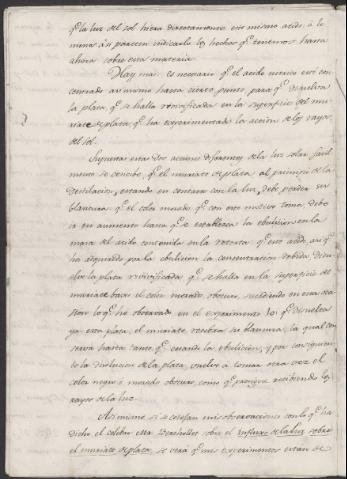 qᵉ la luz del sol hiera directamente este mismo acido, á lo
menos asi parecen indicarlo los hechos qᵉ tenemos hasta
ahora sobre esta materia.
Hay mas: es necesario qᵉ el acido nitrico esté con-
centrado asimismo hasta cierto punto para qᵉ disuelva
la plata, qᵉ se halla revivificada en la superficie del mu-
riate de plata, qᵉ ha experimentado la accion de los rayos
del sol.
Supuestas estas dos acciones diferentes de la luz solar facil-
mente se concibe, qᵉ el muriate de plata, al principio de la
destilacion, estando en contacto con la luz, debe perder su
blancura: qᵉ el color morado qᵉ con este motivo toma debe
ir en aumento hasta qᵉ se establezca la ebulicion en la
masa del acido contenida en la retorta: qᵉ este acido, asi qᵉ
ha adquirido por la ebulicion la concentracion debida, disu-
elve la plata revivificada qᵉ se halla en la superficie del
muriate baxo el color morado obscuro, sucediendo en esta oca-
sion lo qᵉ he observado en el experimento 10: qᵉ disuelta
ya esta plata, el muriate recobra su blancura, la qual con-
serva hasta tanto qᵉ cesando la ebulicion, y por consiguien-
te la disolucion de la plata, vuelve a tomar otra vez el
color negro ó morado obscuro como qᵉ prosigue recibiendo los
rayos de la luz.
Asimismo si se cotejan mis observaciones con lo qᵉ ha
dicho el celebre Mr. Berthollet sobre el influxo de la luz sobre
el muriate de plata, se verá qᵉ mis experimentos estan de